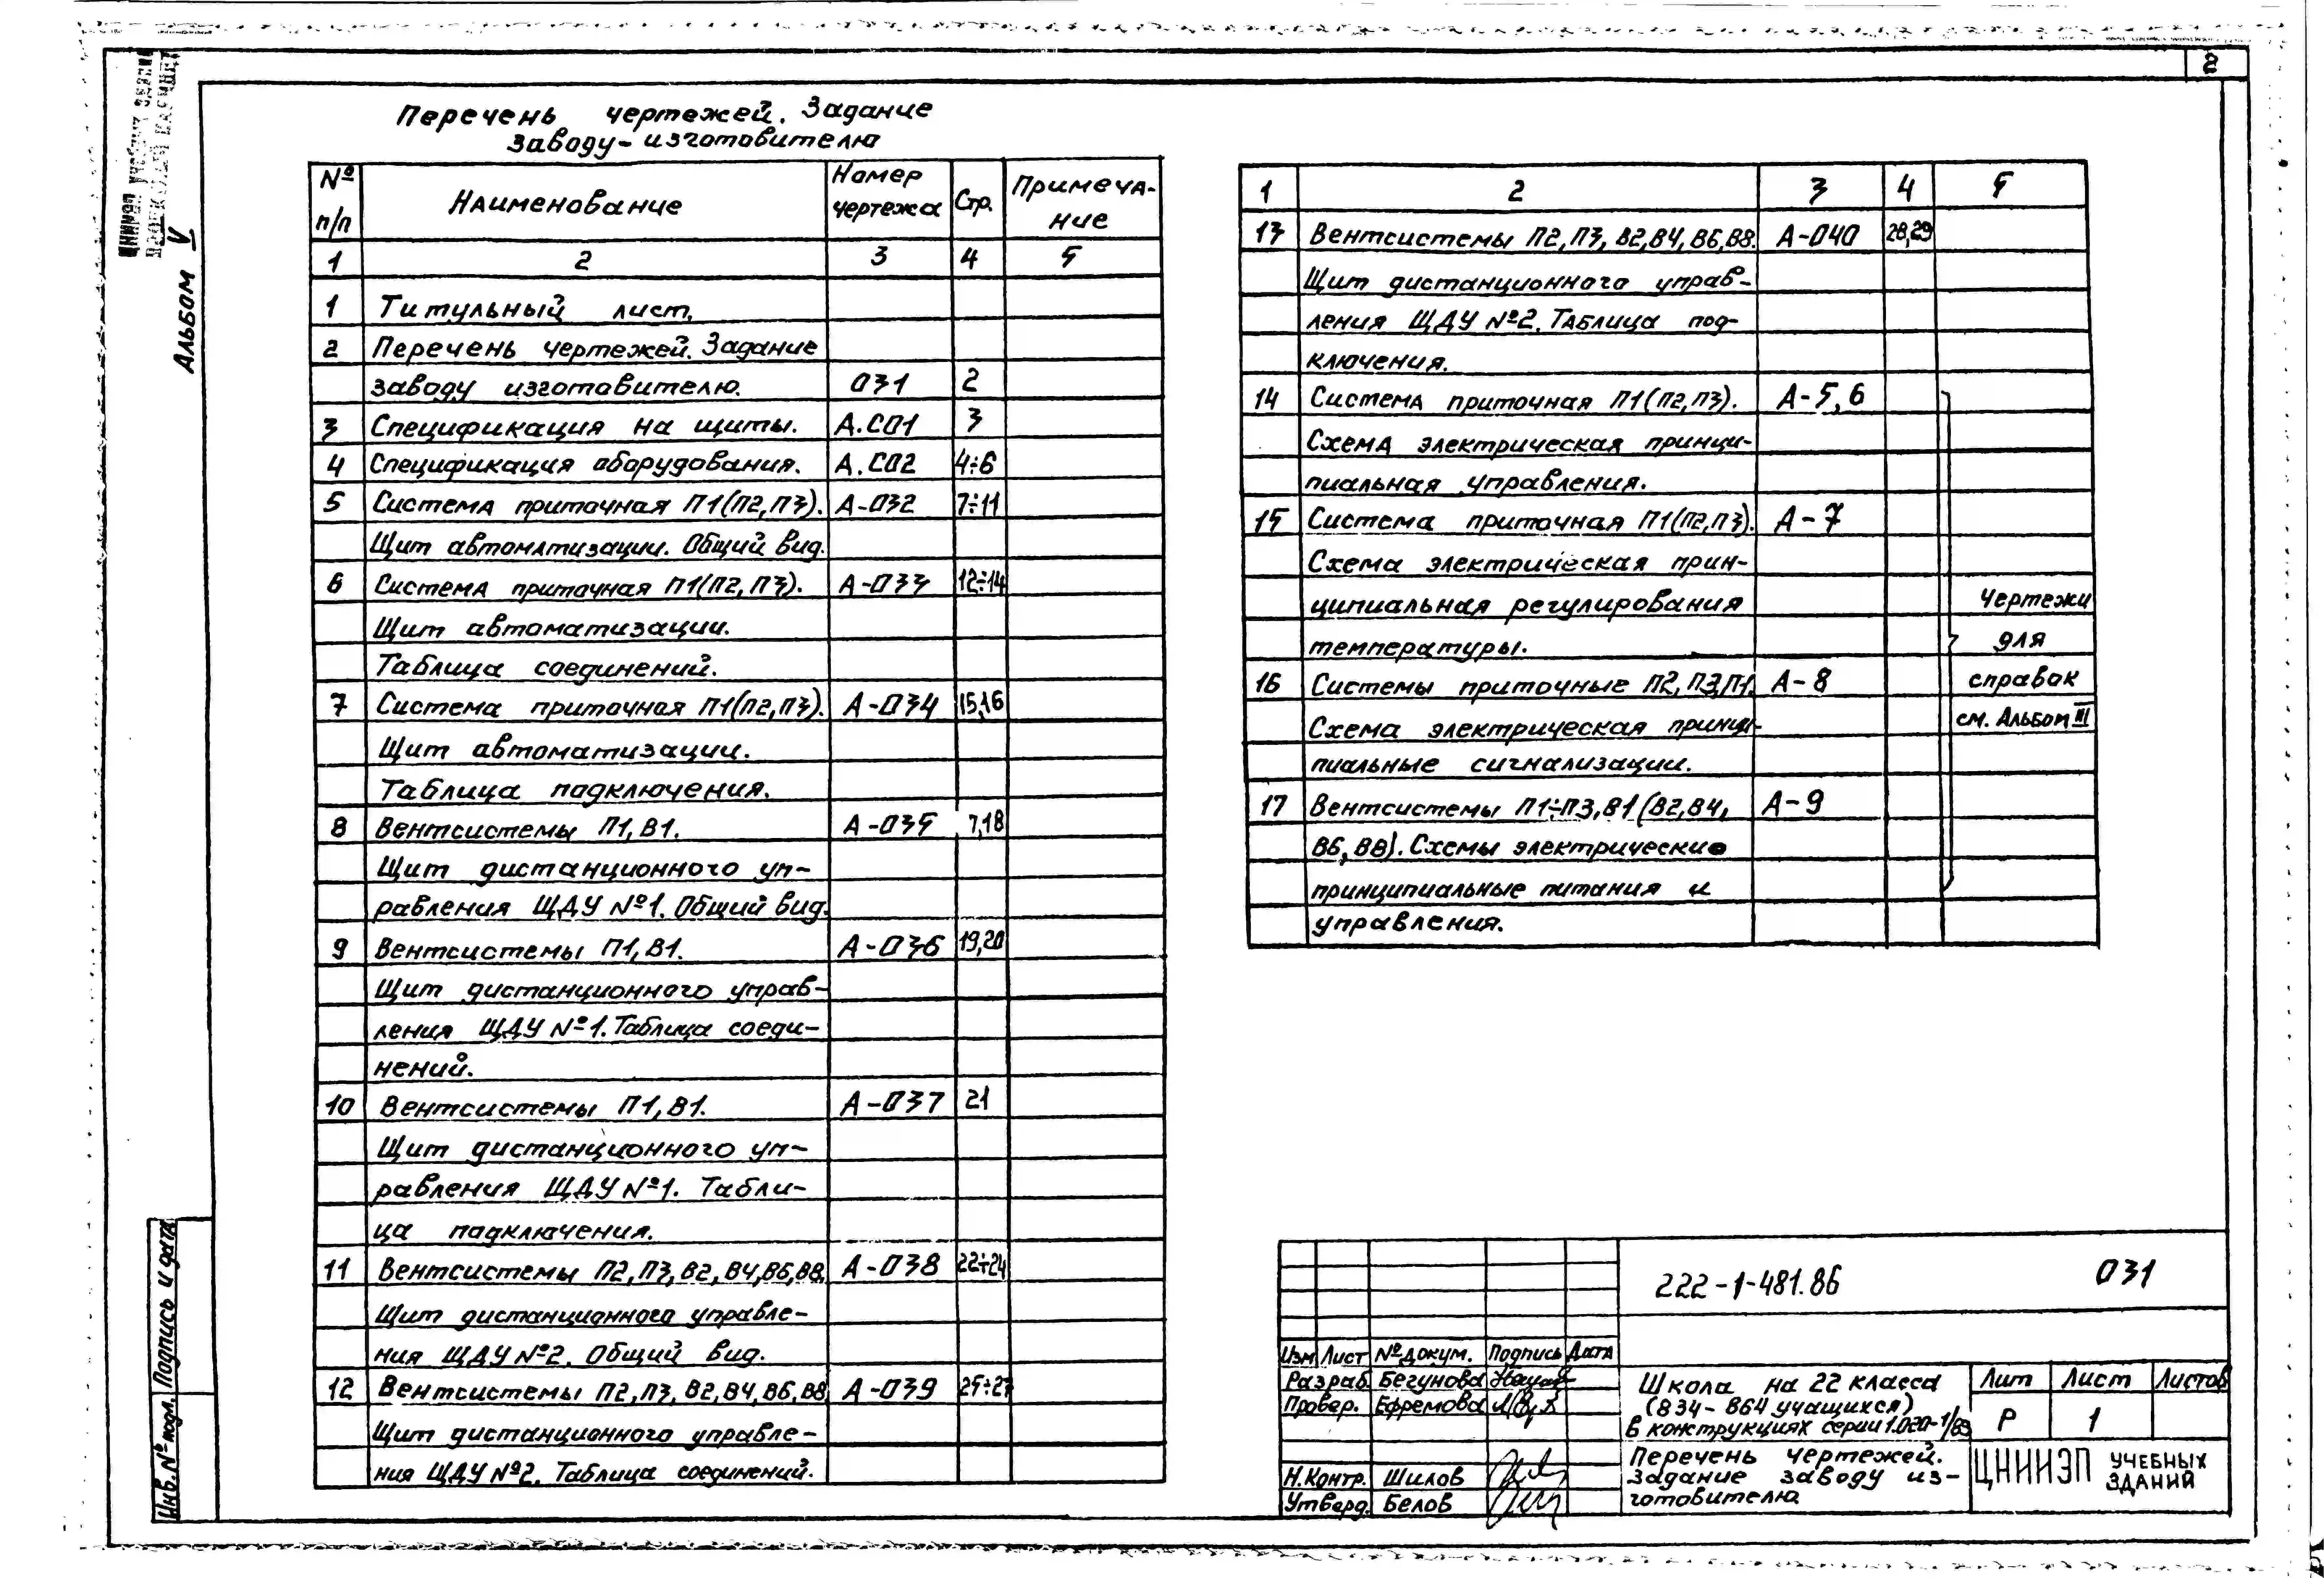 2
Альбом V
Перечень чертежей. Задание
заводу-изготовителю
№ п/п Наименование Номер чертежа Стр. Примечание
1 2 3 4 5
1 Титульный лист.
2 Перечень чертежей. Задание
заводу изготовителю. 031 2
3 Спецификация на щиты. А.СО1 3
4 Спецификация оборудования. А.СО2 4÷6
5 Система приточная П1(П2,П3). А-032 7÷11
Щит автоматизации. Общий вид.
6 Система приточная П1(П2,П3). А-033 12÷14
Щит автоматизации.
Таблица соединений.
7 Система приточная П1(П2,П3). А-034 15,16
Щит автоматизации.
Таблица подключения.
8 Вентсистемы П1,В1. А-035 7,18
Щит дистанционного уп-
равления ЩДУ №1. Общий вид.
9 Вентсистемы П1,В1. А-036 19,20
Щит дистанционного управ-
ления ЩДУ №1. Таблица соеди-
нений.
10 Вентсистемы П1,В1. А-037 21
Щит дистанционного уп-
равления ЩДУ №1. Табли-
ца подключения.
11 Вентсистемы П2,П3,В2,В4,В6,В8. А-038 22÷24
Щит дистанционного управле-
ния ЩДУ №2. Общий вид.
12 Вентсистемы П2,П3,В2,В4,В6,В8 А-039 25÷27
Щит дистанционного управле-
ния ЩДУ №2. Таблица соединений.
1 2 3 4 5
13 Вентсистемы П2,П3,В2,В4,В6,В8. А-040 28,29
Щит дистанционного управ-
ления ЩДУ №2. Таблица под-
ключения.
14 Система приточная П1(П2,П3). А-5,6
Схема электрическая принци-
пиальная управления.
15 Система приточная П1(П2,П3). А-7
Схема электрическая прин-
ципиальная регулирования
температуры.
16 Системы приточные П2,П3,П1. А-8
Схема электрическая принци-
пиальные сигнализации.
17 Вентсистемы П1÷П3,В1(В2,В4, А-9
В6,В8). Схемы электрические
принципиальные питания и
управления.
Чертежи
для
справок
см. Альбом III
222-1-481.86 031
Изм Лист № докум. Подпись Дата
Разраб. Бегунова
Провер. Ефремова
Н.Контр. Шилов
Утверд. Белов
Школа на 22 класса
(834-864 учащихся)
в конструкциях серии 1.020-1/83
Перечень чертежей.
Задание заводу из-
готовителю
Лит Лист Листов
Р 1
ЦНИИЭП УЧЕБНЫХ
ЗДАНИЙ
Подпись и дата
Инв.№ подл.